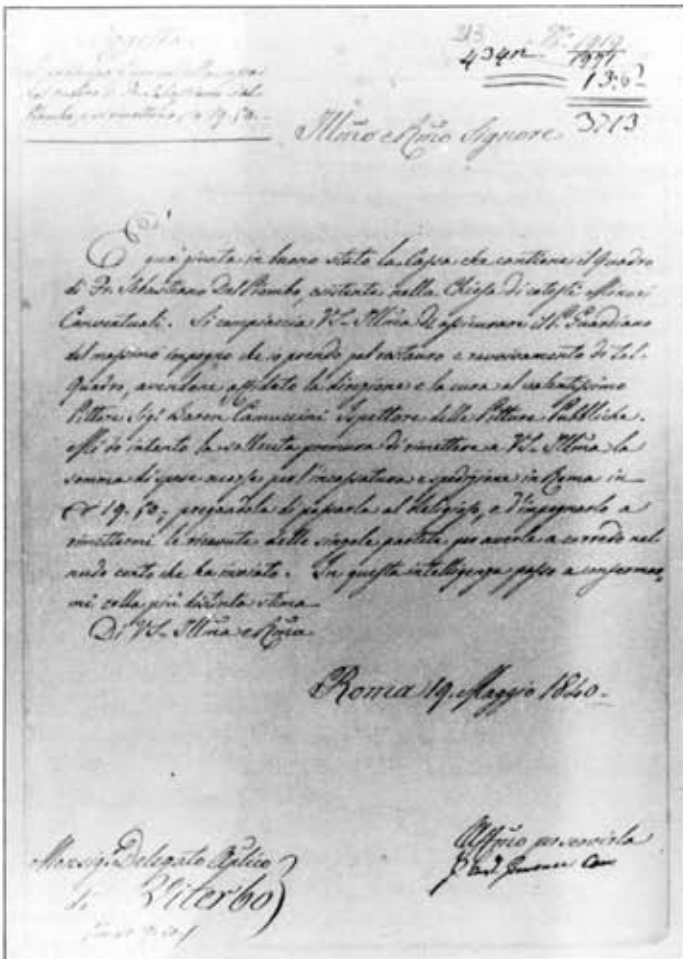 Oggetto
213
434n
No. 1919
1991
3713
Illmo e Rmo Signore
E' qua giunta in buono stato la Cassa che contiene il Quadro
di Fr. Sebastiano Del Piombo, esistente nella Chiesa di cotesti Minori
Conventuali. Si compiaccia VS. Illma di assicurare il P. Guardiano
del massimo impegno che io prendo pel restauro e ravvivamento di tal
Quadro, avendone affidato la direzione e la cura al valentissimo
Pittore Sigr Baron Camuccini Ispettore delle Pitture Pubbliche.
Mi do intanto la sollecita premura di rimettere a VS. Illma la
somma di spese occorse per l'incassatura e spedizione in Roma in
19.50, pregandola di passarla al Religioso, e d'impegnarlo a
rimettermi le ricevute delle singole partite per averle a corredo nel
nudo conto che ha inviato. In questa intelligenza passo a confermar
mi colla più distinta stima
Di VS. Illma e Rma
Roma 19. Maggio 1840.
Affmo per servirla
Monsigr Delegato Aplico
di Viterbo